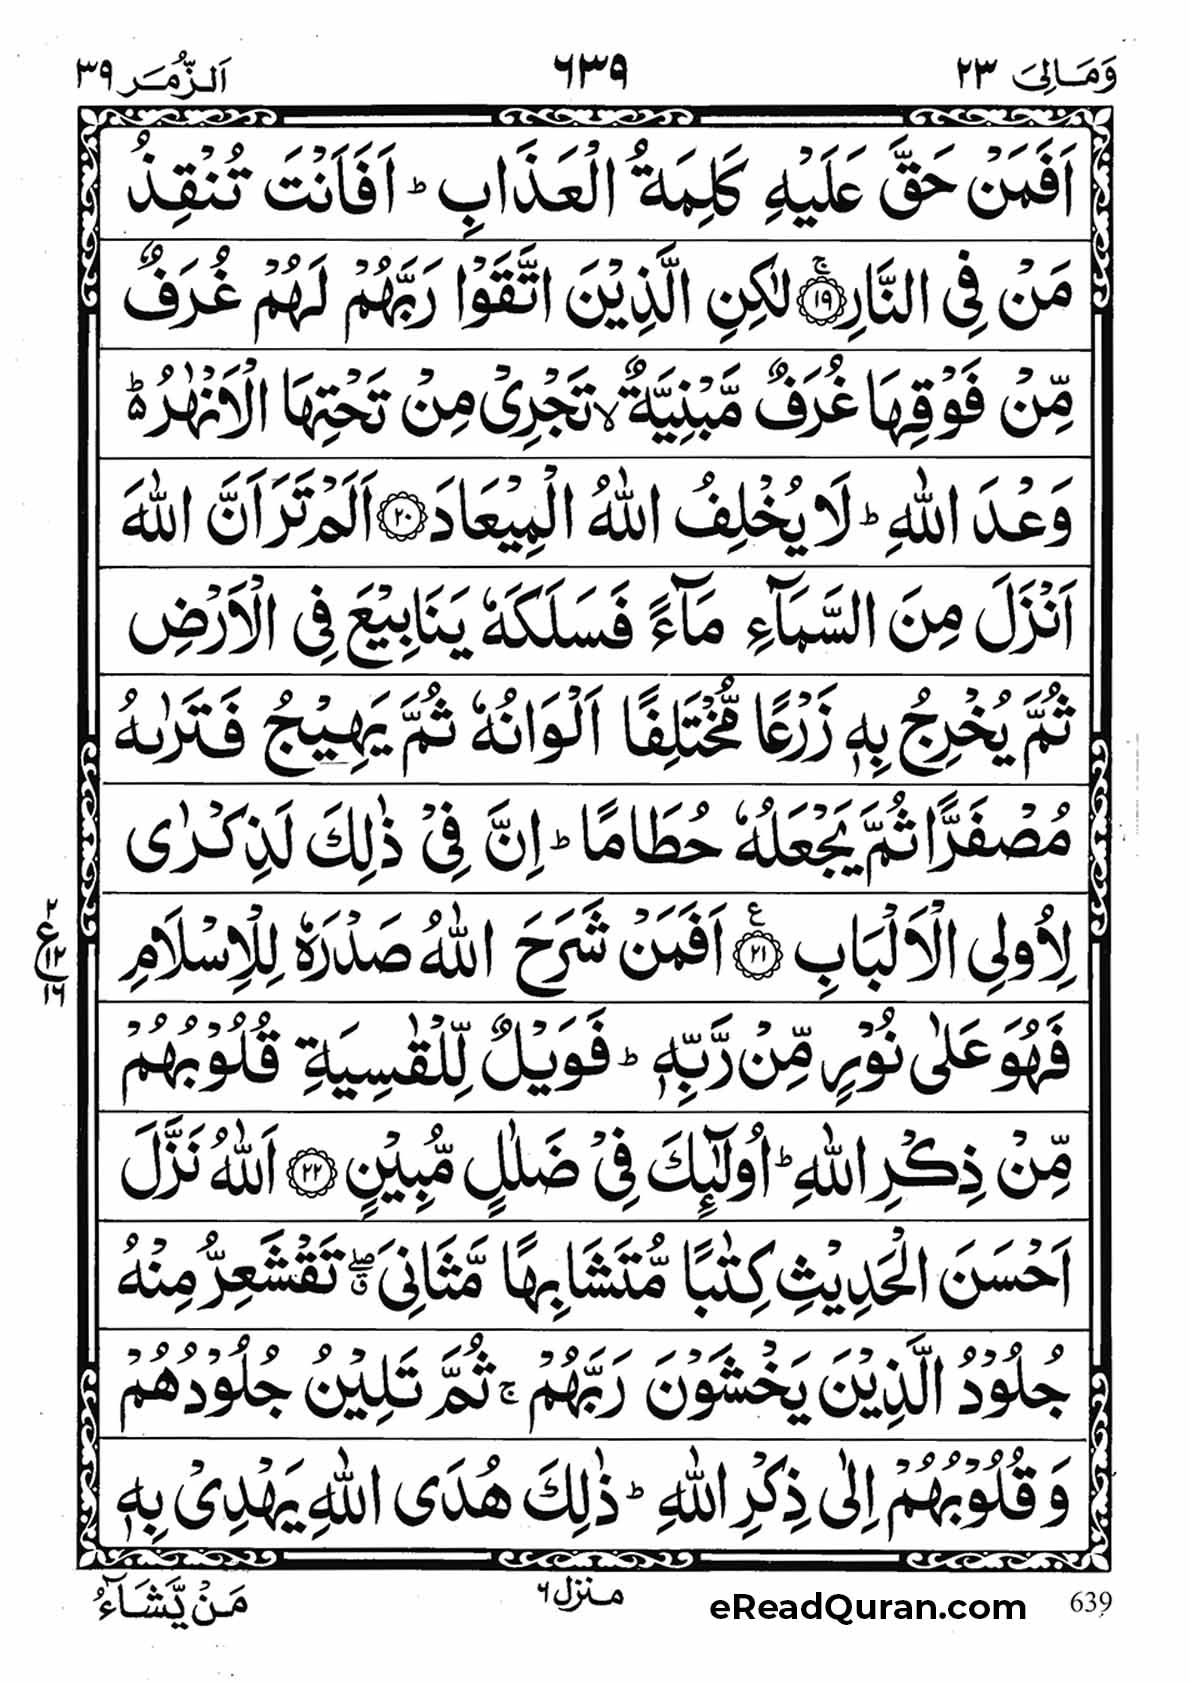 وَمَالِیَ ٢٣
٦٣٩
اَلزُّمَر ٣٩
اَفَمَنْ حَقَّ عَلَیْهِ كَلِمَةُ الْعَذَابِ ؕ اَفَاَنْتَ تُنْقِذُ
مَنْ فِی النَّارِ ۚ ﴿١٩﴾ لٰكِنِ الَّذِیْنَ اتَّقَوْا رَبَّهُمْ لَهُمْ غُرَفٌ
مِّنْ فَوْقِهَا غُرَفٌ مَّبْنِیَّةٌ ۙ تَجْرِیْ مِنْ تَحْتِهَا الْاَنْهٰرُ ۬ؕ
وَعْدَ اللّٰهِ ؕ لَا یُخْلِفُ اللّٰهُ الْمِیْعَادَ ﴿٢٠﴾ اَلَمْ تَرَ اَنَّ اللّٰهَ
اَنْزَلَ مِنَ السَّمَآءِ مَآءً فَسَلَكَهٗ یَنَابِیْعَ فِی الْاَرْضِ
ثُمَّ یُخْرِجُ بِهٖ زَرْعًا مُّخْتَلِفًا اَلْوَانُهٗ ثُمَّ یَهِیْجُ فَتَرٰىهُ
مُصْفَرًّا ثُمَّ یَجْعَلُهٗ حُطَامًا ؕ اِنَّ فِیْ ذٰلِكَ لَذِكْرٰی
لِاُولِی الْاَلْبَابِ ﴿٢١﴾ ع اَفَمَنْ شَرَحَ اللّٰهُ صَدْرَهٗ لِلْاِسْلَامِ
٢
ع
١٢
١٦
فَهُوَ عَلٰی نُوْرٍ مِّنْ رَّبِّهٖ ؕ فَوَیْلٌ لِّلْقٰسِیَةِ قُلُوْبُهُمْ
مِّنْ ذِكْرِ اللّٰهِ ؕ اُولٰٓئِكَ فِیْ ضَلٰلٍ مُّبِیْنٍ ﴿٢٢﴾ اَللّٰهُ نَزَّلَ
اَحْسَنَ الْحَدِیْثِ كِتٰبًا مُّتَشَابِهًا مَّثَانِیَ ۖۗ تَقْشَعِرُّ مِنْهُ
جُلُوْدُ الَّذِیْنَ یَخْشَوْنَ رَبَّهُمْ ۚ ثُمَّ تَلِیْنُ جُلُوْدُهُمْ
وَقُلُوْبُهُمْ اِلٰی ذِكْرِ اللّٰهِ ؕ ذٰلِكَ هُدَی اللّٰهِ یَهْدِیْ بِهٖ
مَنْ یَّشَآءُ
منزل ٦
eReadQuran.com
639